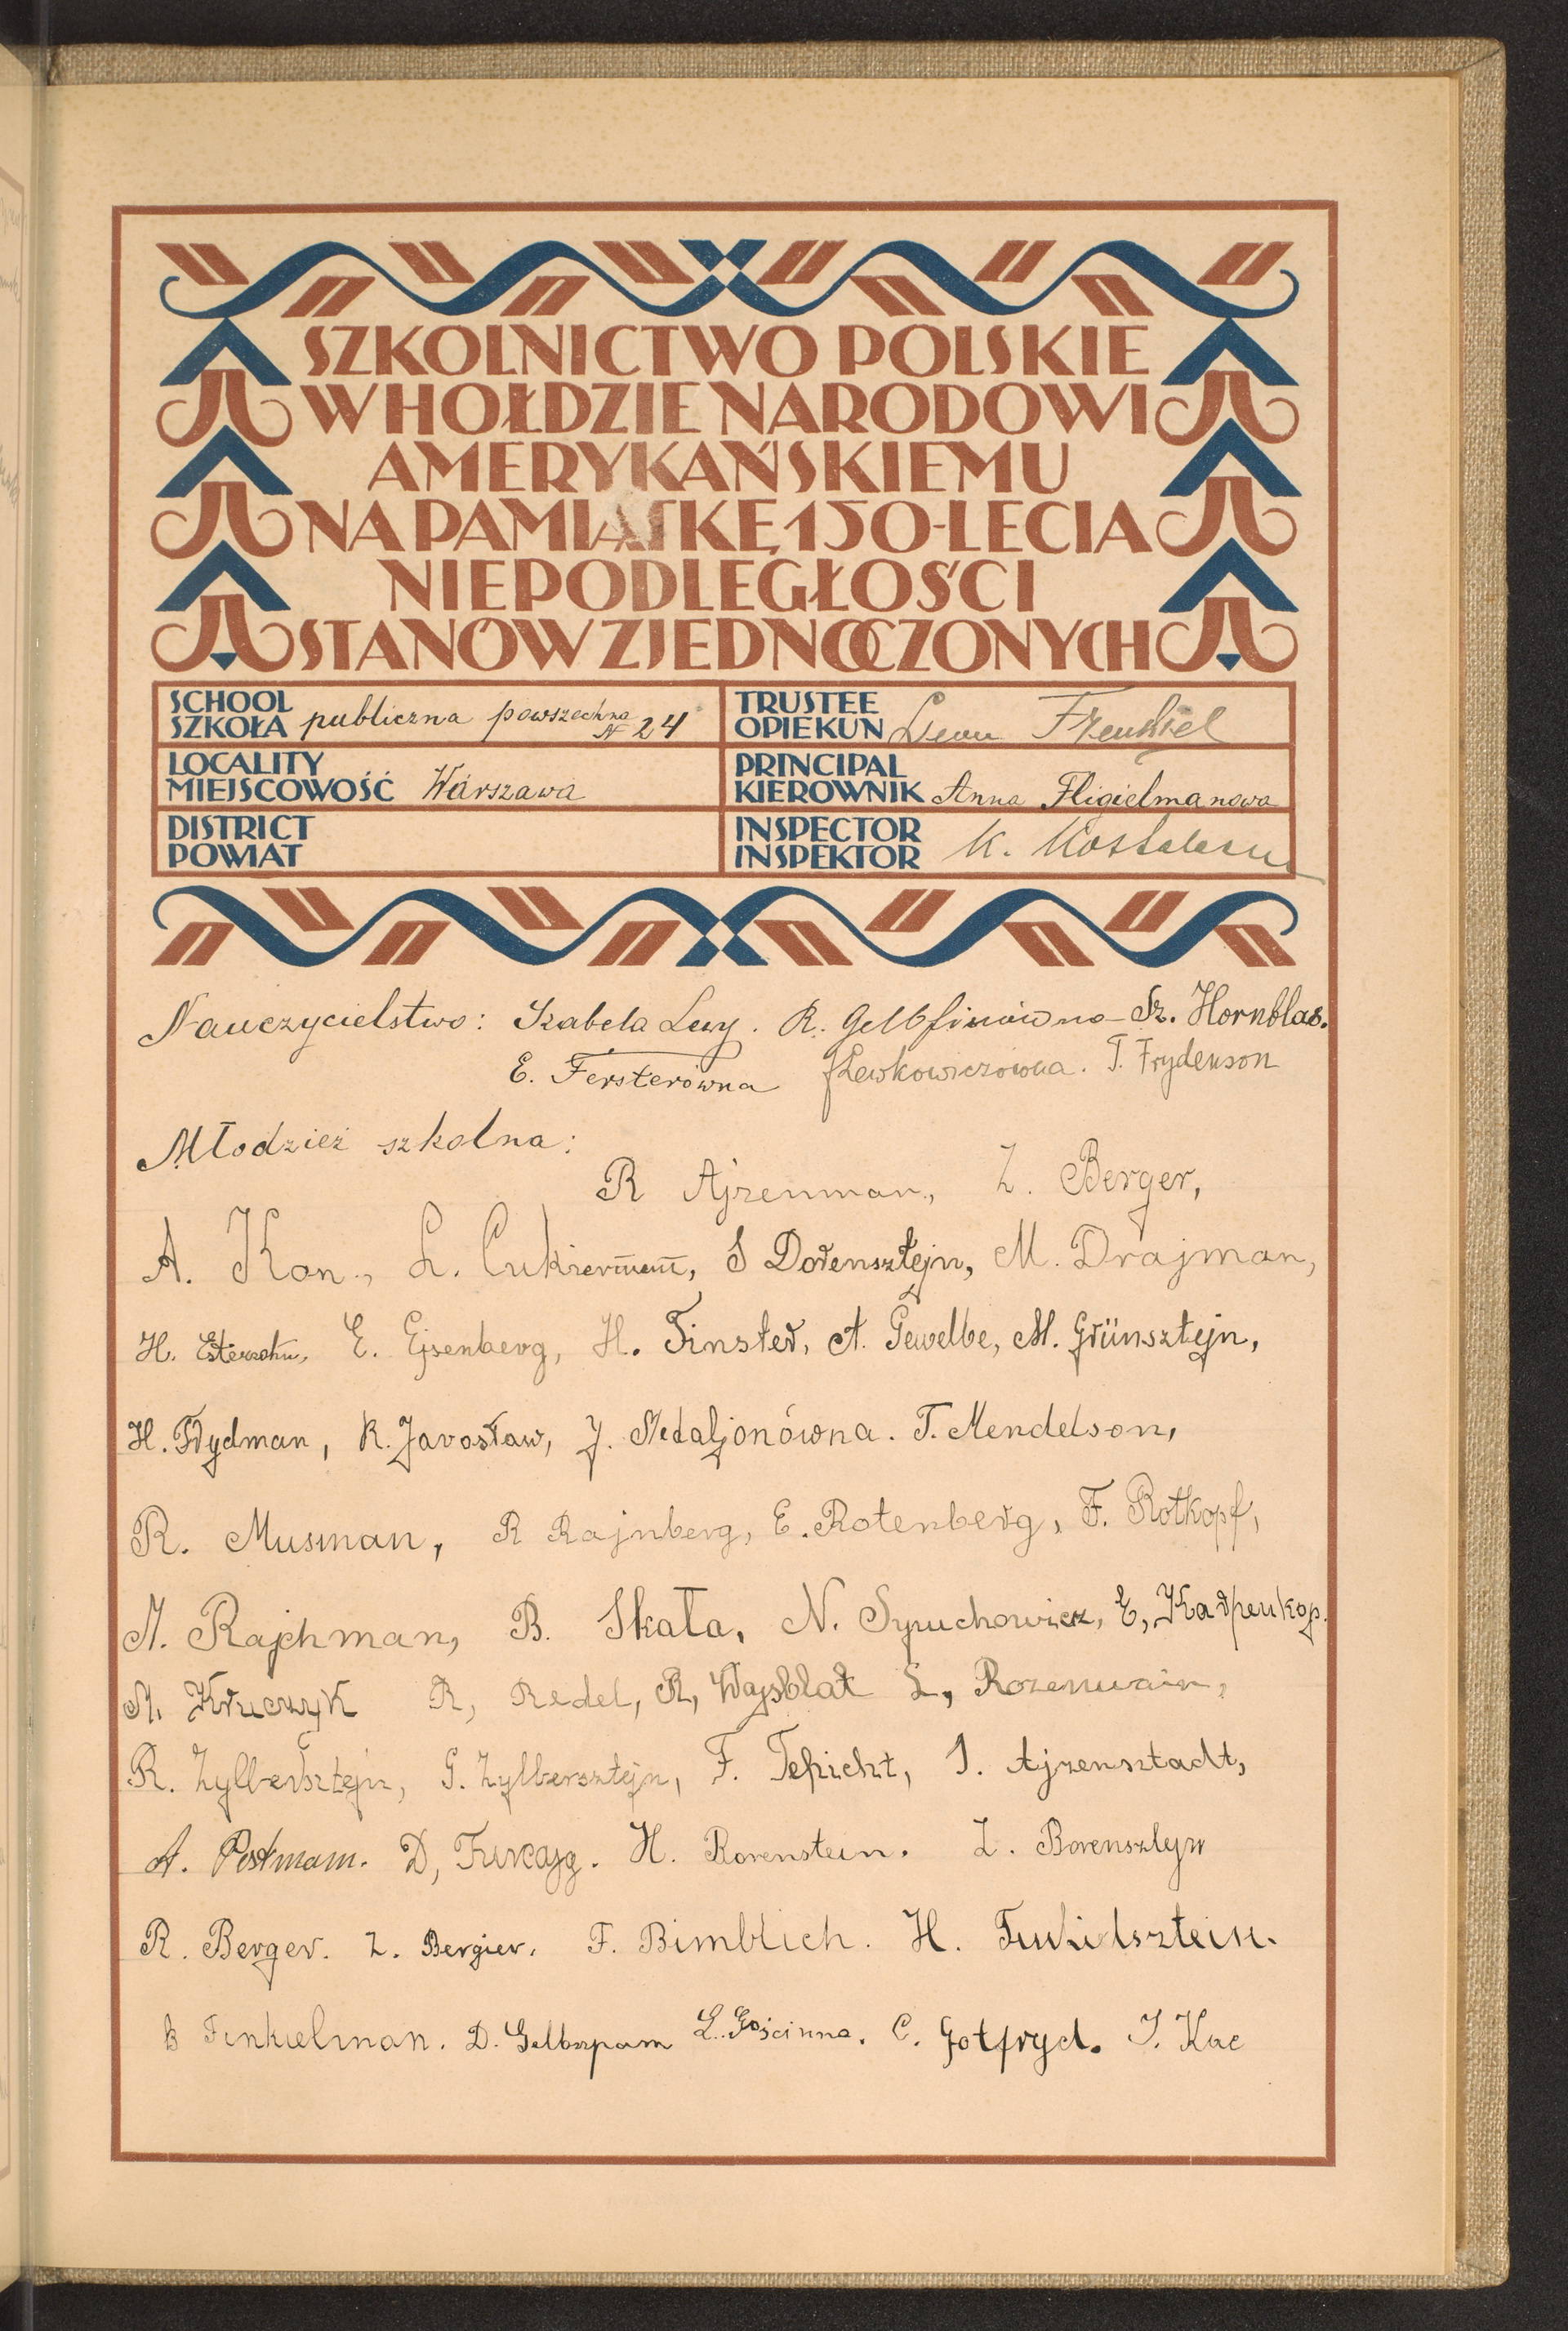 SZKOLNICTWO POLSKIE
W HOŁDZIE NARODOWI
AMERYKAŃSKIEMU
NA PAMIĄTKĘ 150-LECIA
NIEPODLEGŁOŚCI
STANÓW ZJEDNOCZONYCH
SCHOOL
SZKOŁA publiczna powszechna N 24
TRUSTEE
OPIEKUN Leon Frenkiel
LOCALITY
MIEJSCOWOŚĆ Warszawa
PRINCIPAL
KIEROWNIK Anna Fligielmanowa
DISTRICT
POWIAT
INSPECTOR
INSPEKTOR K.
Nauczycielstwo: Izabela Lewy. R. Gelbfiszówna Sz. Hornblas.
E. Fersterówna Lewkowiczówna. T. Frydenson
Młodzież szkolna:
R Ajzenman, Z. Berger,
A. Kon., L. Cukierman, S Dorensztejn, M. Drajman,
H. E. Ejsenberg, H. Finster, A. Gewelbe, M. Grünsztejn,
H. Frydman, R. Jarosław, J. Medaljonówna. T. Mendelson,
R. Musman, R Rajnberg, E. Rotenberg, F. Rotkopf,
M. Rajchman, B. Skała, N. Syruchowicz, E, Karpenkop.
M. Kruczyk R, Redel, R, Wajsblat L, Rozenwain,
R. Zylbersztejn, G. Zylbersztejn, F. Tepicht, S. Ajzensztadt,
A. Postmam. D, H. Rorenstein. Z. Borensztejn
R. Berger. Z. Bergier. F. Bimblich. H. Finkielsztein.
B Finkielman. D. L. Gościnna. C. Gotfryd. I. Kac